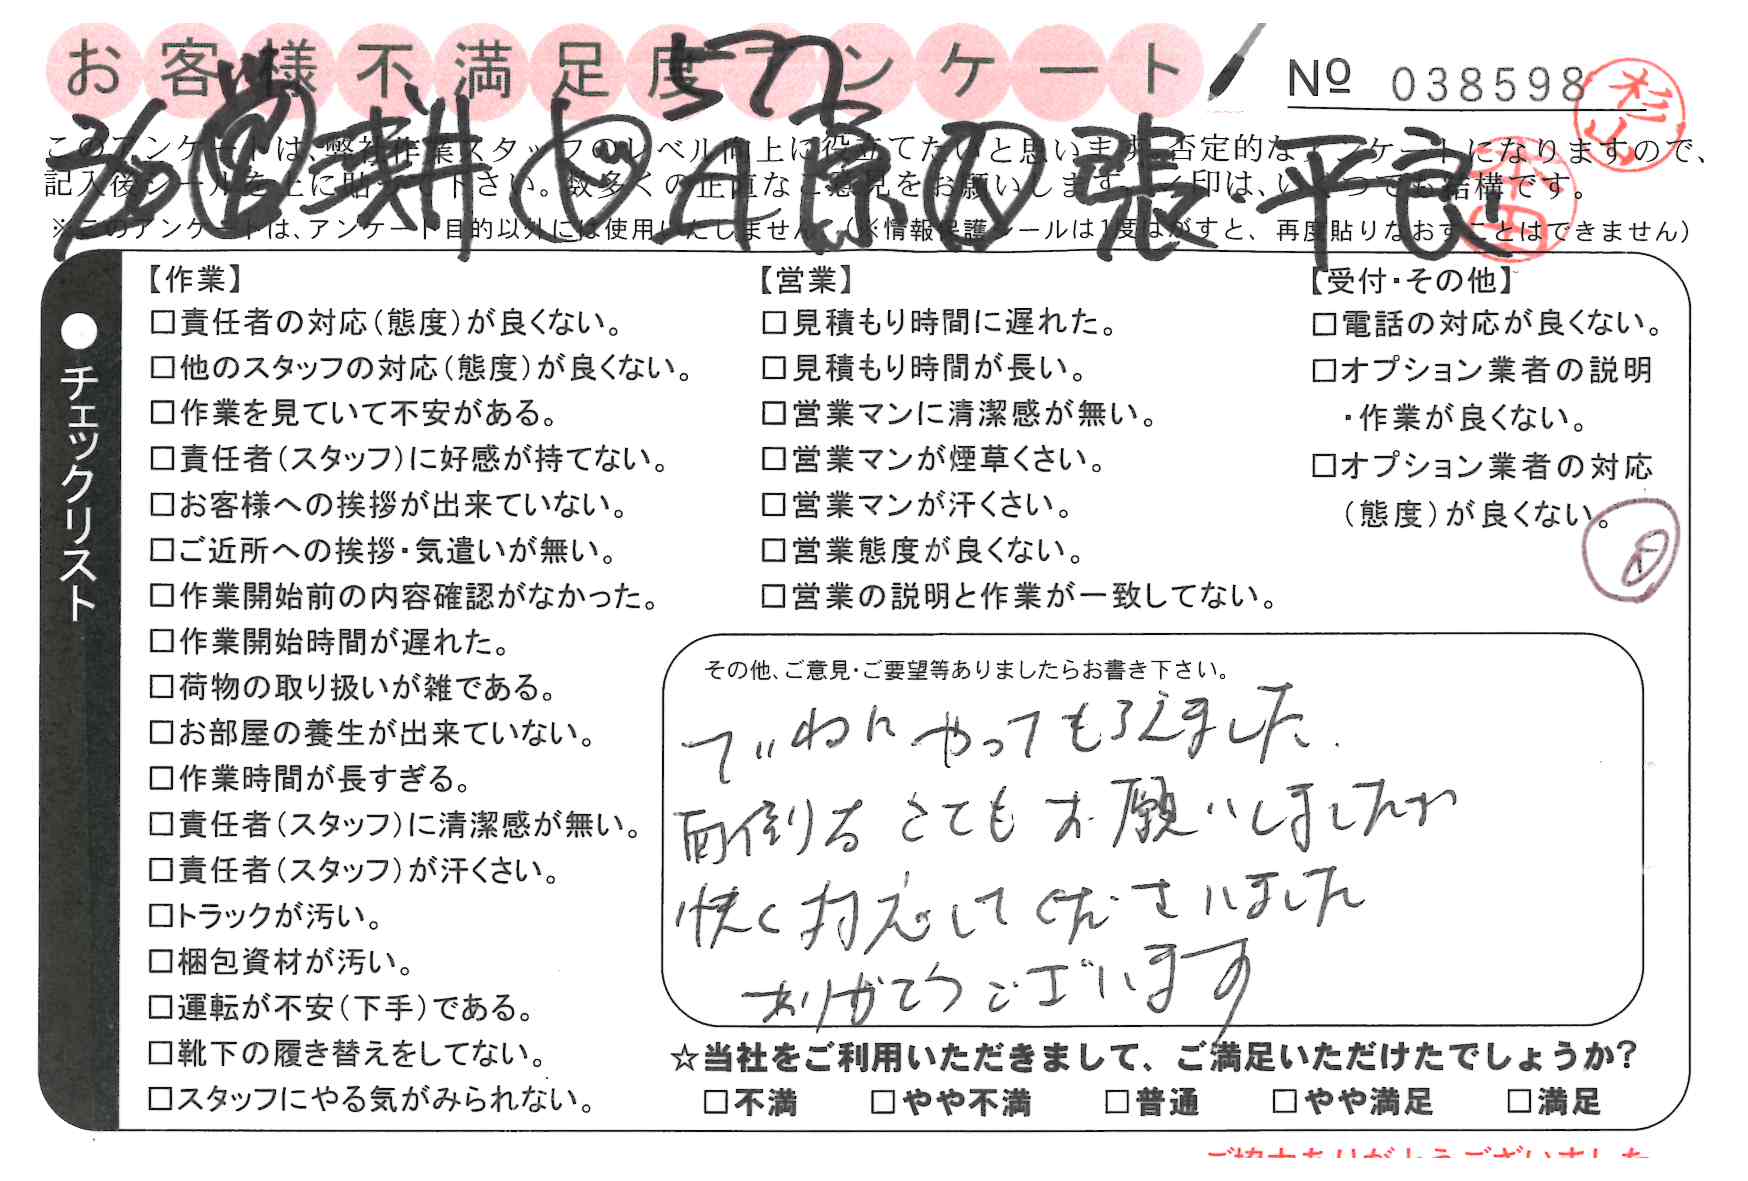 お客様不満足度アンケート
№ 038598
このアンケートは、弊社作業スタッフのレベル向上に役立てたいと思います。否定的なアンケートになりますので、
記入後シールを上に貼って下さい。数多くの正直なご意見をお願いします。レ印は、いくつでも結構です。
※このアンケートは、アンケート目的以外には使用いたしません。(※情報保護シールは1度はがすと、再度貼りなおすことはできません)
572
張・平良
杉山
チェックリスト
【作業】
□責任者の対応(態度)が良くない。
□他のスタッフの対応(態度)が良くない。
□作業を見ていて不安がある。
□責任者(スタッフ)に好感が持てない。
□お客様への挨拶が出来ていない。
□ご近所への挨拶・気遣いが無い。
□作業開始前の内容確認がなかった。
□作業開始時間が遅れた。
□荷物の取り扱いが雑である。
□お部屋の養生が出来ていない。
□作業時間が長すぎる。
□責任者(スタッフ)に清潔感が無い。
□責任者(スタッフ)が汗くさい。
□トラックが汚い。
□梱包資材が汚い。
□運転が不安(下手)である。
□靴下の履き替えをしてない。
□スタッフにやる気がみられない。
【営業】
□見積もり時間に遅れた。
□見積もり時間が長い。
□営業マンに清潔感が無い。
□営業マンが煙草くさい。
□営業マンが汗くさい。
□営業態度が良くない。
□営業の説明と作業が一致してない。
【受付・その他】
□電話の対応が良くない。
□オプション業者の説明
・作業が良くない。
□オプション業者の対応
(態度)が良くない。
その他、ご意見・ご要望等ありましたらお書き下さい。
ていねいにやってもらえました.
面倒なことでもお願いしましたが
快く対応してくださいました
ありがとうございます
☆当社をご利用いただきまして、ご満足いただけたでしょうか?
□不満 □やや不満 □普通 □やや満足 □満足
ご協力ありがとうございました